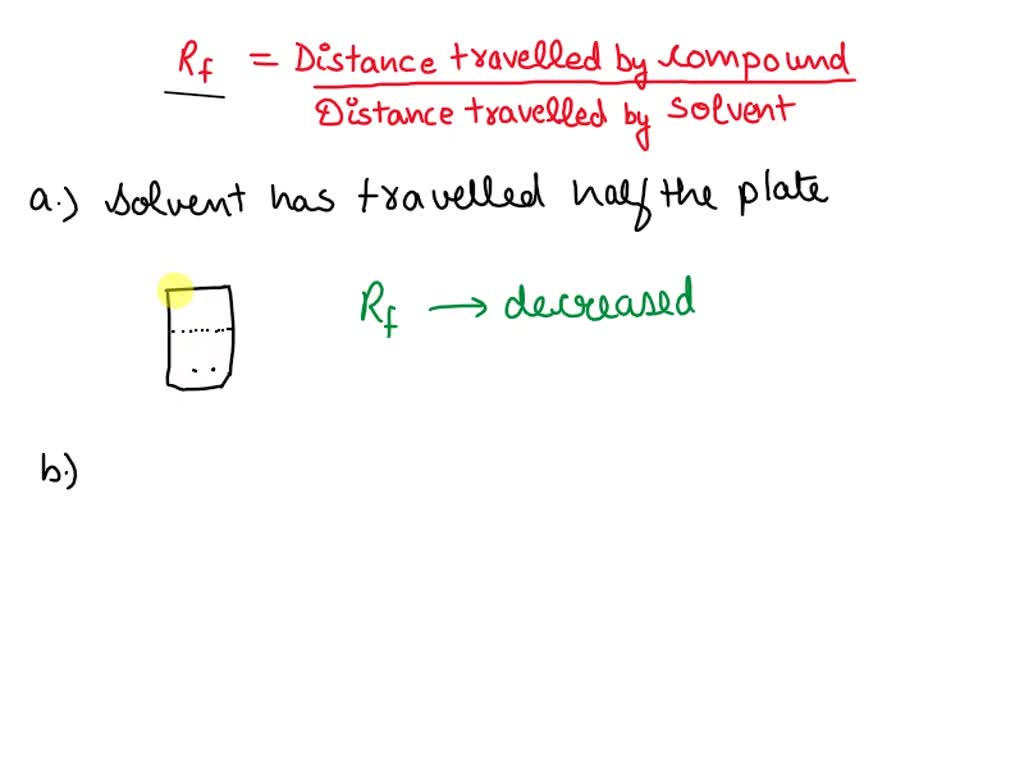 Rf = Distance travelled by compound
Distance travelled by solvent
a.) solvent has travelled half the plate
Rf → decreased
b.)